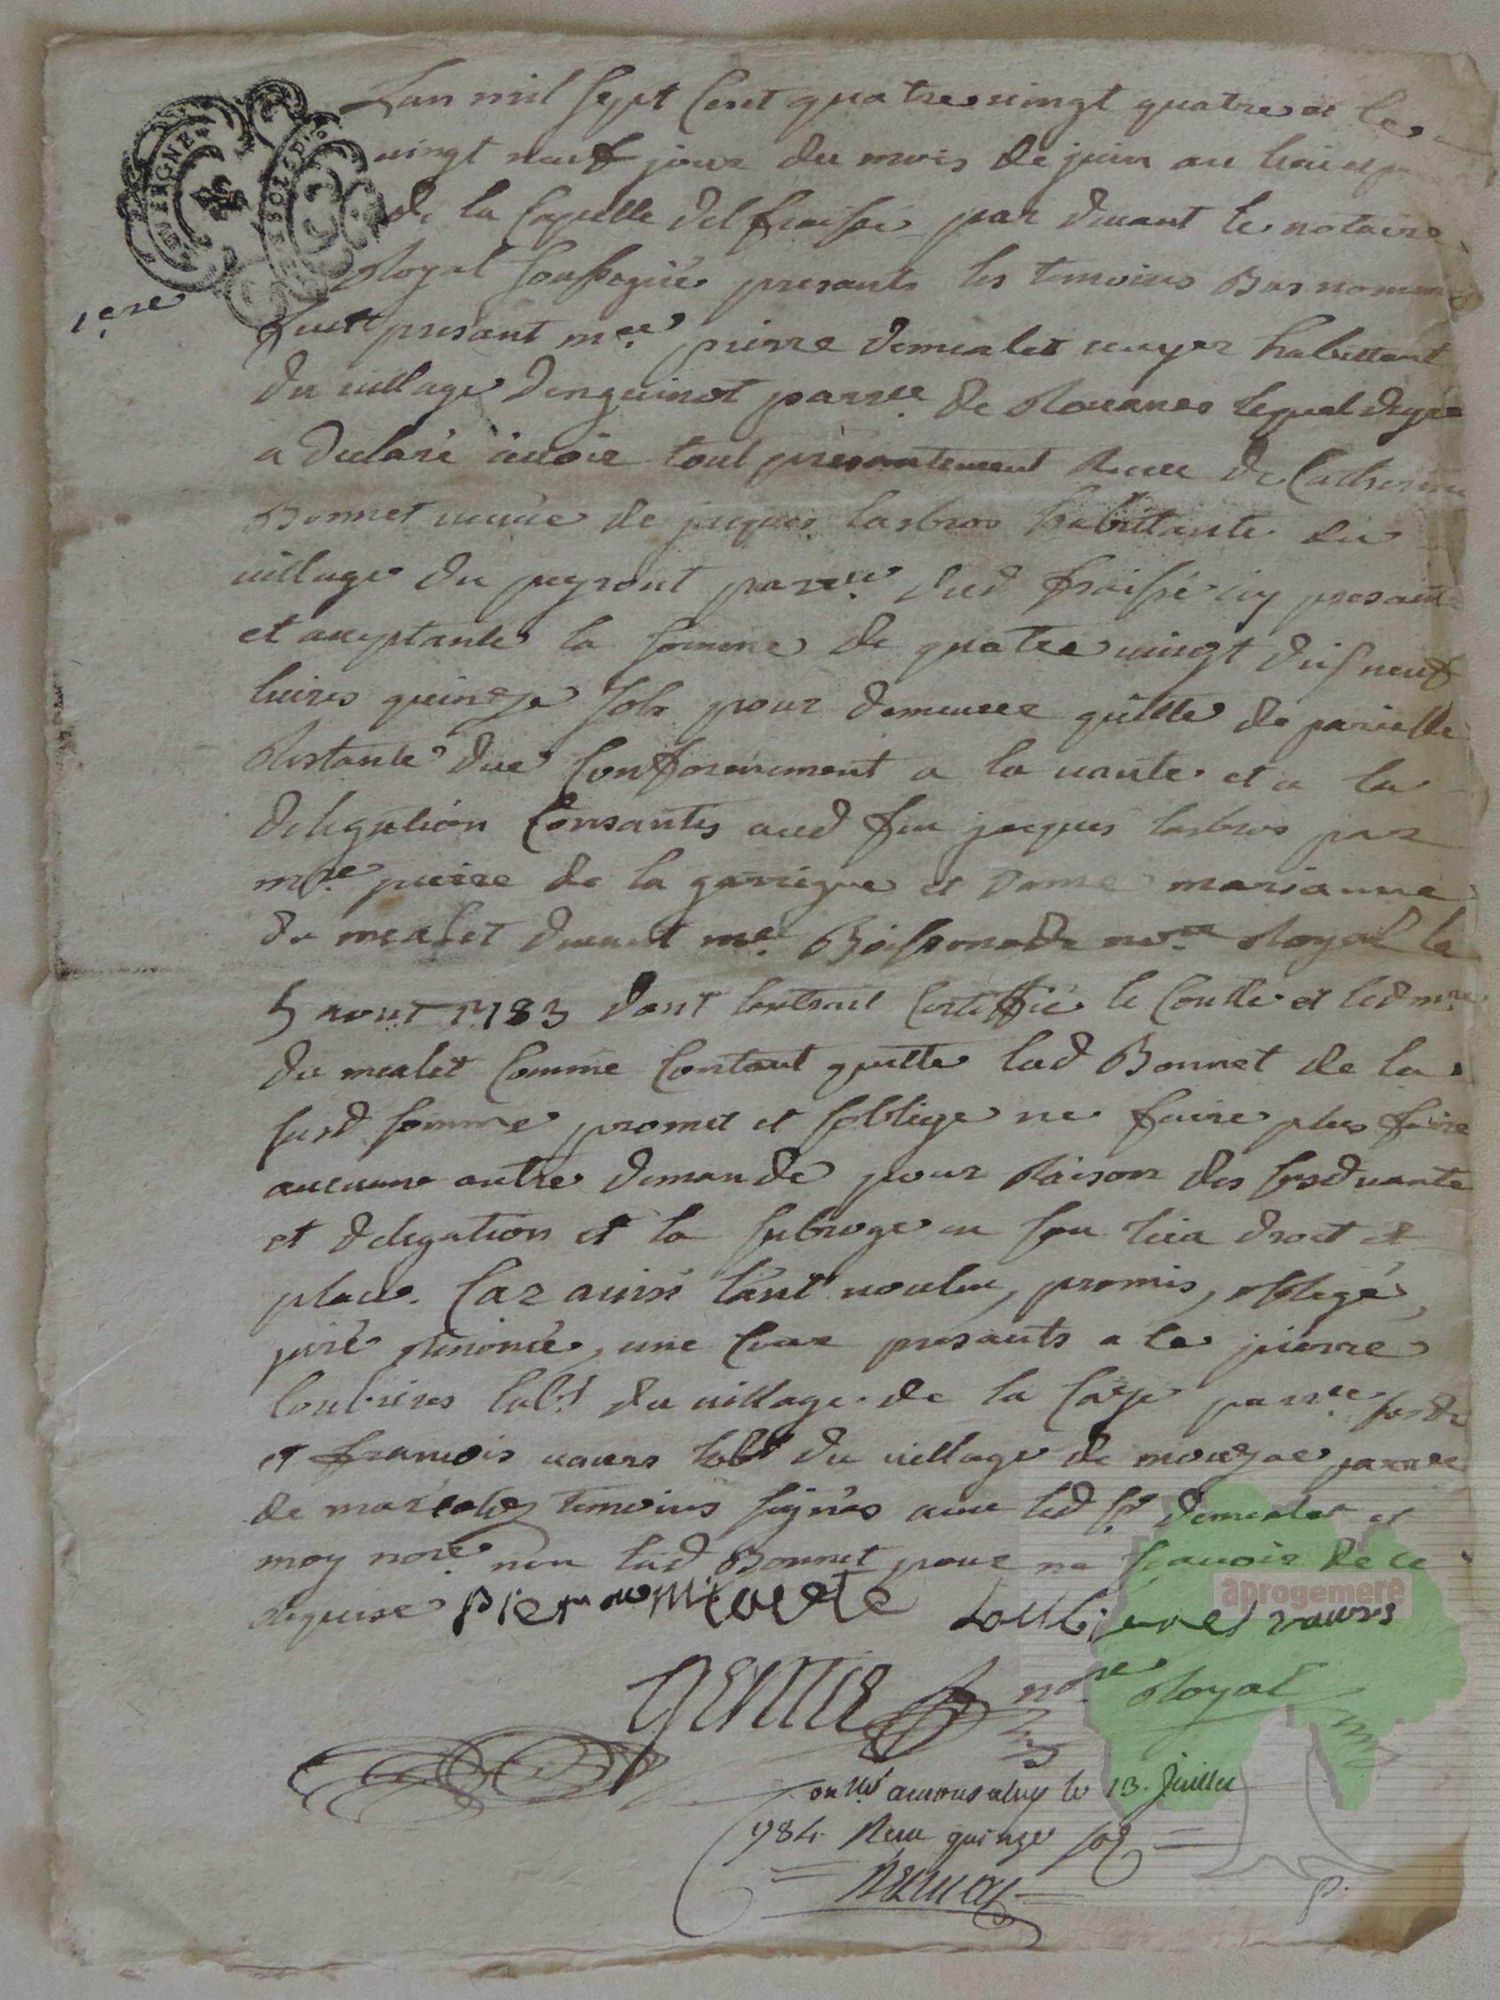 Lan mil sept Cent quatre vingt quatre et le
vingt neuf jour du mois de juin au lieu et
de la Capelle del fraisse par devant le notaire
Royal soussigné presants les temoins Bas nommes
1ere
fust presant mre pierre demealet ecuyer habittant
du village denguinot parsse de Rouanes lequel degre
a declaré avoir tout presantement Receu de Catherine
Bonnet veuve de jacques lasbros habittante du
village du peyrout parsse dud fraisse icy presante
et aceptante la somme de quatre vingt disneuf
livres quinze sols pour demeurer quitte de pareille
Restante due Conformement a la vante et a la
deligation Consantis aud feu jacques lasbros par
mre pierre de la garrigue et dame marianne
du mealet devant me Boissonade nore Royal le
5 aout 1783 dont lextrait Certiffié le Contle et led mre
du mealet Comme Contant quitte lad Bonnet de la
susd somme promet et soblige ne faire plus faire
aucune autre demande pour Raison des susd vante
et delegation et la subroge en son lieu droit et
place. Car ainsi lant voulu, promis, obligé,
juré Renoncé, une Court presants a ce pierre
loubieres labr du village de la Caze parsse susde
et francois vaurs labr du village de mouzac parsse
de marcoles temoins signés avec led sr demealet et
moy nore non lad Bonnet pour ne scavoir de ce
Requise pierre demealete Loubieres vaurs
gentie nore Royal
onllé a le 13. Juillet
1784. Receu quinze sols
P.
AUVERGNE
aprogemere